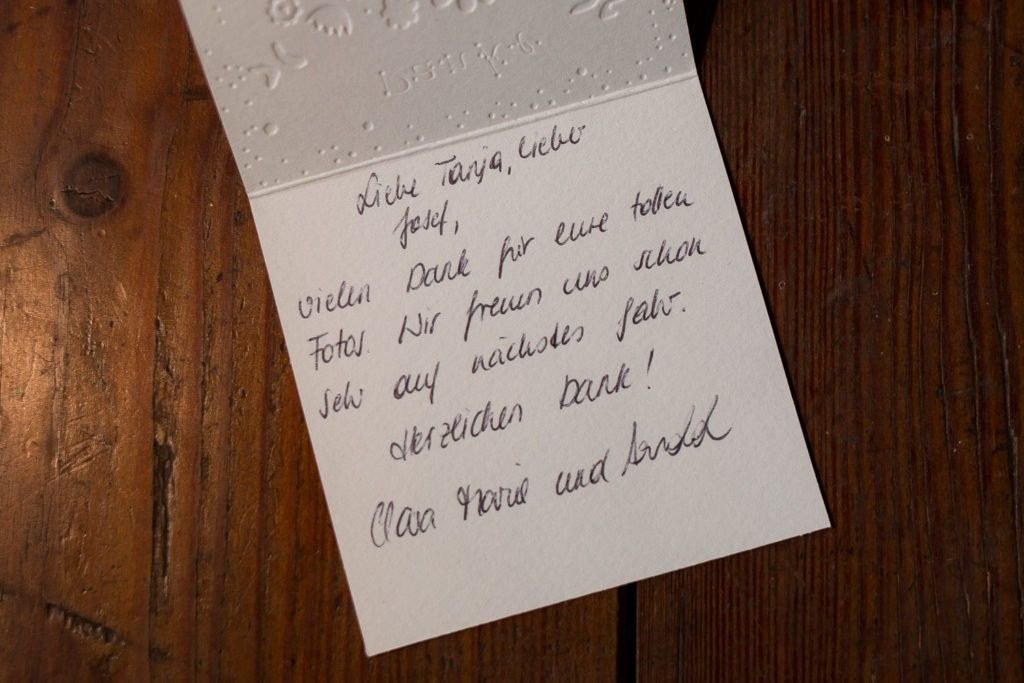 Danke
Liebe Tanja, lieber
Josef,
vielen Dank für eure tollen
Fotos. Wir freuen uns schon
sehr auf nächstes Jahr.
Herzlichen Dank!
Clara Marie und Arnold